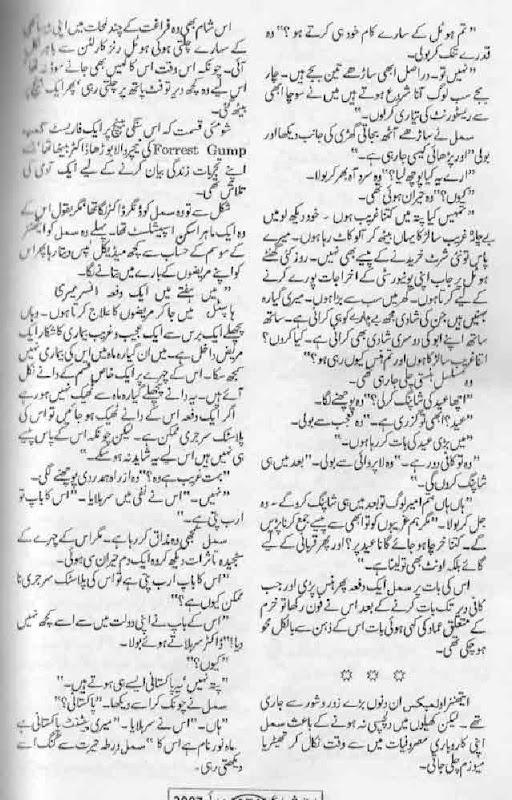 ”تم ہوٹل کے سارے کام خود ہی کرتے ہو؟“ وہ
قدرے تنک کر بولی۔
”نہیں تو۔ دراصل ابھی ساڑھے تین بجے ہیں۔ چار
بجے سب لوگ آنا شروع ہوتے ہیں میں نے سوچا ابھی
سے ریسٹورنٹ کی تیاری کر لوں۔“
سمل نے ساڑھے آٹھ بجاتی گھڑی کی جانب دیکھا اور
بولی ”اور پڑھائی کیسی جا رہی ہے۔“
”ارے یہ کیا پوچھ لیا؟“ وہ سرد آہ بھر کر بولا۔
”کیوں؟“ وہ حیران ہوئی تھی۔
”تمہیں کیا پتہ میں کتنا غریب ہوں۔ خود دیکھ لو میں
بے چارہ غریب سا لڑکا یہاں بیٹھ کر آلو کاٹ رہا ہوں۔ میرے
پاس تو نئی شرٹ خریدنے کے پیسے بھی نہیں۔ روز کئی گھنٹے
ہوٹل پر جاب اپنی یونیورسٹی کے اخراجات پورے کرنے
کے لیے کرتا ہوں۔ گھر میں سب سے بڑا ہوں۔ میری گیارہ
بہنیں ہیں جن کی شادی مجھ بے چارے کو ہی کرانی ہے۔ ساتھ
ساتھ اپنے ابو کی دوسری شادی بھی کرانی ہے۔ کیا کروں؟
اتنا غریب سا لڑکا ہوں اور تم ہنس کیوں رہی ہو؟“
وہ مسلسل ہنستی چلی جا رہی تھی۔
”اچھا عید کی شاپنگ کر لی؟“ وہ پوچھنے لگا۔
”عید؟ ابھی تو گزری ہے۔“ وہ تعجب سے بولی۔
”میں بڑی عید کی بات کر رہا ہوں۔“
”وہ تو کافی دور ہے۔“ وہ لاپروائی سے بولی۔ ”بعد میں ہی
شاپنگ کروں گی۔“
”ہاں ہاں تم امیر لوگ تو بعد میں ہی شاپنگ کرو گے۔ وہ
جل کر بولا۔ ”مگر ہم غریبوں کو تو ابھی سے پیسے جمع کرنا پڑیں
گے۔ کتنا خرچا ہو جائے گا نا عید پر؟ اور پھر قربانی کے لیے
گائے بلکہ اونٹ بھی تو لینا ہے۔“
اس کی بات پر سمل ایک دفعہ پھر ہنس پڑی اور جب
کافی دیر تک بات کرنے کے بعد اس نے فون رکھا تو خرم
کے متعلق عماد کی کہی ہوئی بات اس کے ذہن سے بالکل محو
ہو چکی تھی۔
☼ ☼ ☼
ایتھنز اولمپکس ان دنوں بڑے زور و شور سے جاری
تھے۔ لیکن کھیلوں میں دلچسپی نہ ہونے کے باعث سمل
اپنی کاروباری مصروفیات میں سے وقت نکال کر تھیٹر یا
میوزیم چلی جاتی۔
اس شام بھی وہ فراغت کے چند لمحات میں اپنی
کے سہارے چلتی ہوئی ہوٹل رٹز کارلٹن سے باہر نکل
آئی۔ چونکہ اس وقت اس کا کہیں بھی جانے کا موڈ نہ تھا
اس لیے وہ کچھ دیر تو فٹ پاتھ پر چلتی رہی ’پھر ایک بینچ پر
بیٹھ گئی۔
شومئی قسمت کہ اس سنگی بینچ پر ایک فاریسٹ گمپ
Forrest Gump کی نیچر والا بوڑھا ڈاکٹر بیٹھا تھا‘ جسے
اپنے تجربات زندگی بیان کرنے کے لیے ایک آدمی کی
تلاش تھی۔
شکل سے تو وہ سمل کو ڈنگر ڈاکٹر لگا تھا‘ مگر بقول اس کے
وہ ایک ماہر اسکن اسپیشلسٹ تھا۔ پہلے وہ سمل کو ایتھنز
کے موسم کے حساب سے کچھ میڈیکل ٹپس دیتا رہا پھر اس
کو اپنے مریضوں کے بارے میں بتانے لگا۔
”میں ہفتے میں ایک دفعہ
ہاسپٹل میں جا کر مریضوں کا علاج کرتا ہوں۔ وہاں
پچھلے ایک برس سے ایک عجیب و غریب بیماری کا شکار ایک
مریض داخل ہے۔ میں ان گیارہ ماہ میں اس کی بیماری نہیں
سمجھ سکا۔ اس کے چہرے پر ایک خاص قسم کے دانے نکل
آئے ہیں۔ یہ دانے پچھلے گیارہ ماہ سے ٹھیک نہیں ہو رہے
اگر ایک دفعہ اس کے دانے ٹھیک ہو جائیں تو اس کی
پلاسٹک سرجری ممکن ہے۔ لیکن چونکہ اس کے پاس پیسے
ہی نہیں ہیں اس لیے یہ شاید نہ ہو سکے۔“
”بہت غریب ہے وہ؟“ وہ از راہ ہمدردی پوچھنے لگی۔
”نہیں۔“ اس نے نفی میں سر ہلایا۔ ”اس کا باپ تو
ارب پتی ہے۔“
سمل سمجھی وہ مذاق کر رہا ہے۔ مگر اس کے چہرے کے
سنجیدہ تاثرات دیکھ کر وہ ایک دم حیران سی ہوئی۔
”اس کا باپ ارب پتی ہے تو اس کی پلاسٹک سرجری نا
ممکن کیوں ہے؟“
”اس کے باپ نے اپنی دولت میں سے اسے کچھ نہیں
دیا؟“ ڈاکٹر سر ہلاتے ہوئے بولا۔
”کیوں؟“
”پتہ نہیں‘ یہ پاکستانی ایسے ہی ہوتے ہیں۔“
سمل نے چونک کر اسے دیکھا۔ ”پاکستانی؟“
”ہاں۔“ اس نے سر ہلایا۔ ”میری پیشنٹ پاکستانی ہے
ماہ نور نام ہے اس کا“ سمل ورطہ حیرت سے گنگ اسے
دیکھتی رہی۔
2007